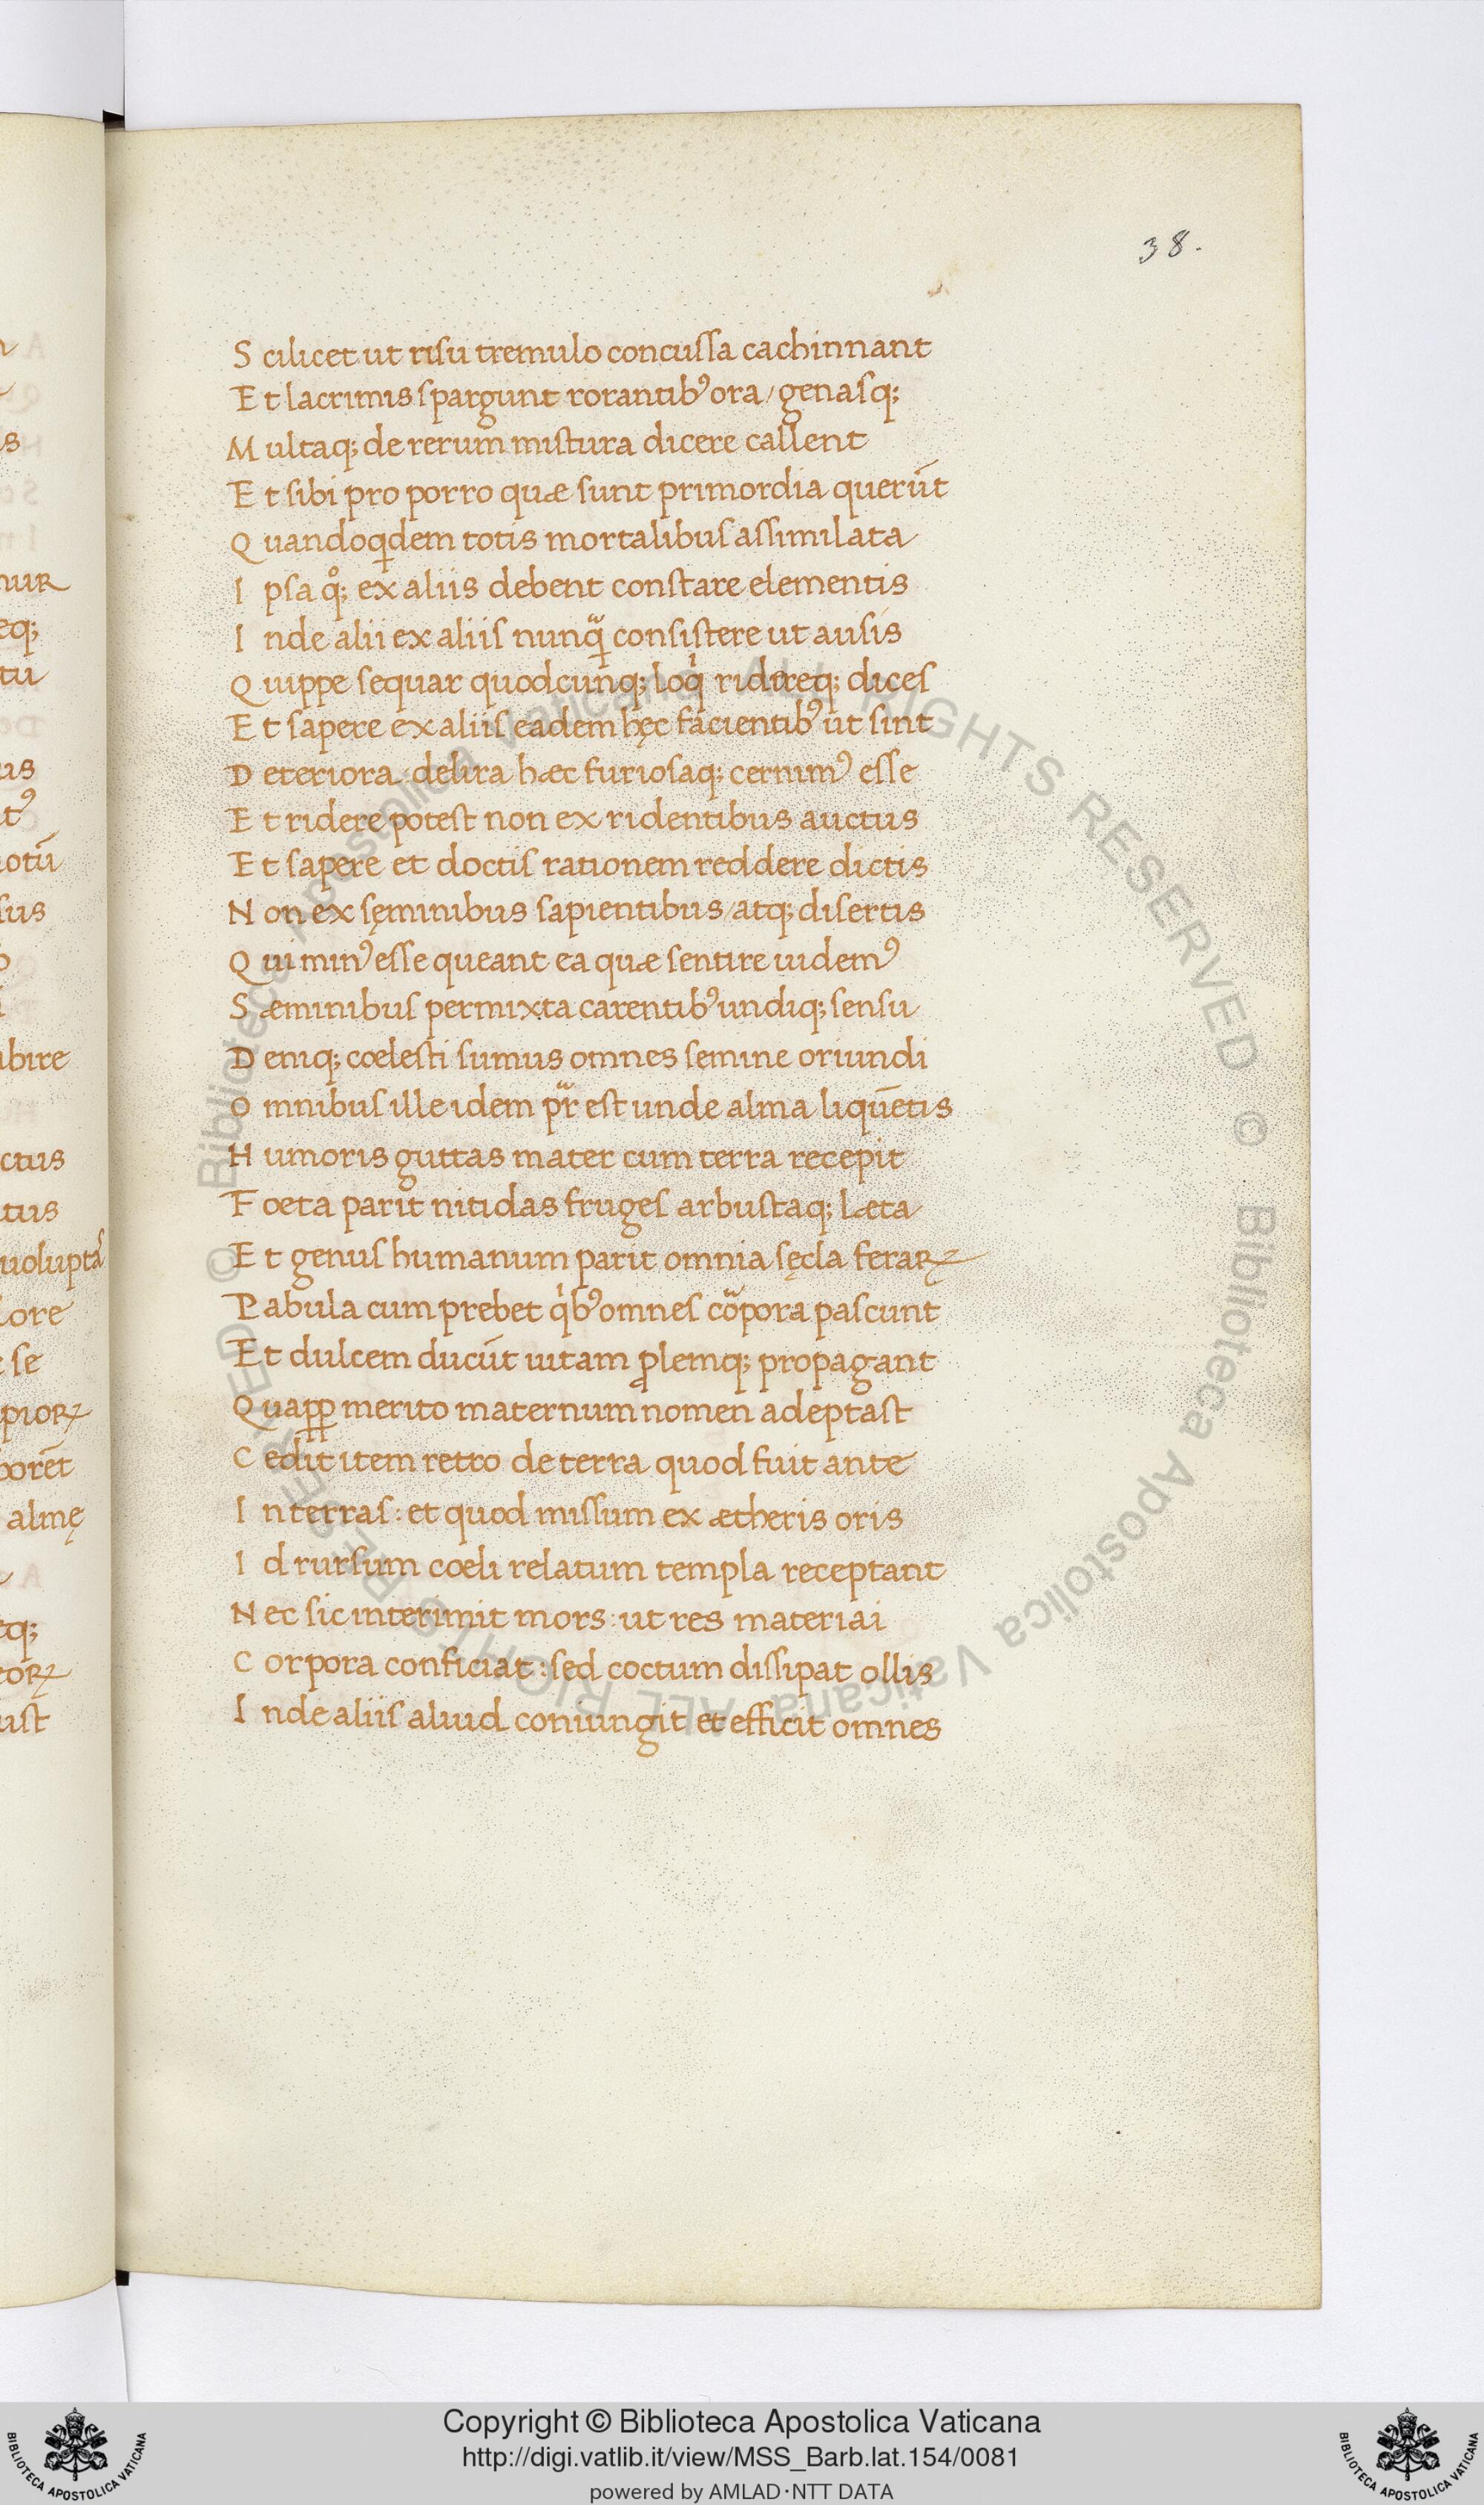 38.
S cilicet ut risu tremulo concussa cachinnant
E t lacrimis spargunt rorantibꝰ ora / genasq;
M ultaq; de rerum mistura dicere callent
E t sibi pro porro quæ sunt primordia querūt
Q uandoqdem totis mortalibus assimilata
I psa qͦ; ex aliis debent constare elementis
I nde alii ex aliis nunqᷓ consistere ut ausis
Q uippe sequar quodcunq; loqͥ ridereq; dices
E t sapere ex aliis eadem hęc facientibꝰ ut sint
D eteriora delira hæc furiosaq; cernimꝰ esse
E t ridere potest non ex ridentibus auctus
E t sapere et doctis rationem reddere dictis
N on ex sęminibus sapientibus / atq; disertis
Q ui minꝰ esse queant ea quæ sentire uidemꝰ
S æminibus permixta carentibꝰ undiq; sensu
D eniq; cœlesti sumus omnes semine oriundi
O mnibus ille idem pr̃ est unde alma liquētis
H umoris guttas mater cum terra recepit
F oeta parit nitidas fruges arbustaq; læta
E t genus humanum parit omnia sęcla feraꝝ
P abula cum prebet qͥbꝰ omnes cõpora pascunt
E t dulcem ducūt uitam ꝓlemq; propagant
Q uaꝓꝑ merito maternum nomen adeptast
C edit item retro de terra quod fuit ante
I n terras : et quod missum ex ætheris oris
I d rursum cœli relatum templa receptant
N ec sic interimit mors : ut res materiai
C orpora conficiat : sed coctum dissipat ollis
I nde aliis aliud coniungit et efficit omnes
© Biblioteca Apostolica Vaticana ALL RIGHTS RESERVED © Biblioteca Apostolica Vaticana ALL RIGHTS RESERVED
Copyright © Biblioteca Apostolica Vaticana
http://digi.vatlib.it/view/MSS_Barb.lat.154/0081
powered by AMLAD·NTT DATA
BIBLIOTECA APOSTOLICA VATICANA
BIBLIOTECA APOSTOLICA VATICANA